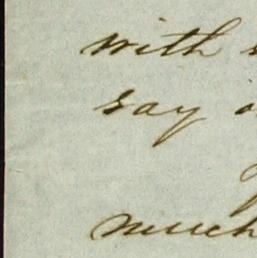 with
say
much